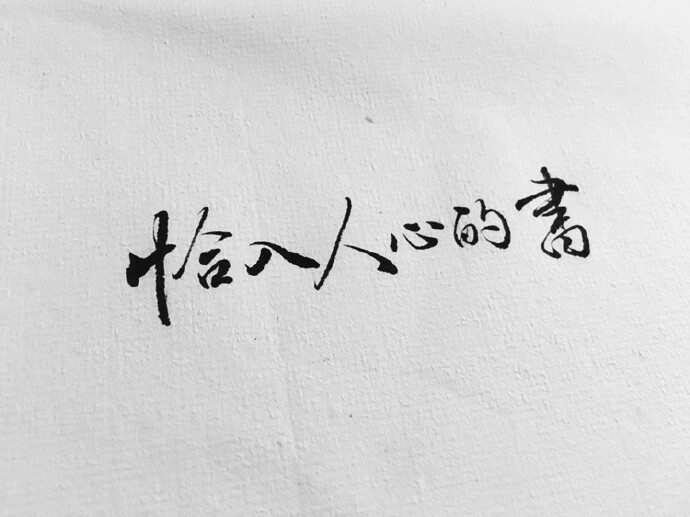 恰入人心的書